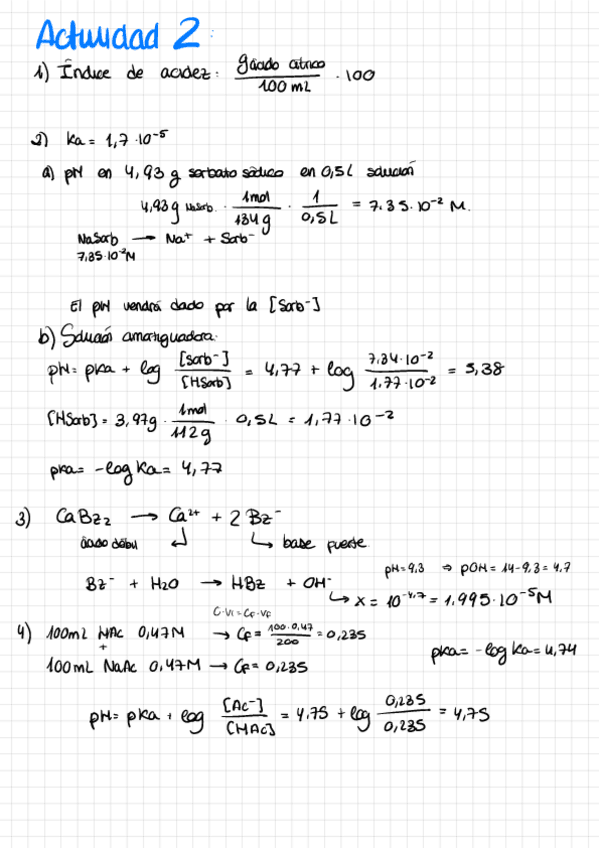 Actividad 2:
1) Índice de acidez: g ácido cítrico / 100 mL · 100
2) Ka = 1,7 · 10⁻⁵
a) pH en 4,93 g sorbato sódico en 0,5L solución
4,93 g NaSorb. · 1mol / 134 g · 1 / 0,5 L = 7.35 · 10⁻² M.
NaSorb → Na⁺ + Sorb⁻
7,35·10⁻² M
El pH vendrá dado por la [Sorb⁻]
b) Solución amortiguadora.
pH = pKa + log [Sorb⁻] / [HSorb] = 4,77 + log 7,34·10⁻² / 1.77·10⁻² = 5,38
[HSorb] = 3,97g · 1mol / 112 g · 0,5L = 1,77·10⁻²
pKa = -log Ka = 4,77
3) CaBz₂ → Ca²⁺ + 2 Bz⁻
ácido débil ↲ ↳ base fuerte.
pH = 9,3 ⇒ pOH = 14-9,3 = 4,7
Bz⁻ + H₂O → HBz + OH⁻
↳ x = 10⁻⁴·⁷ = 1.995·10⁻⁵ M
C·Vi = Cf·Vf
4) 100mL HAc 0,47M → Cf = 100·0,47 / 200 = 0,235
+
pKa = -log Ka = 4,74
100mL NaAc 0,47M → Cf = 0,235
pH = pKa + log [Ac⁻] / [HAc] = 4.75 + log 0,235 / 0,235 = 4,75